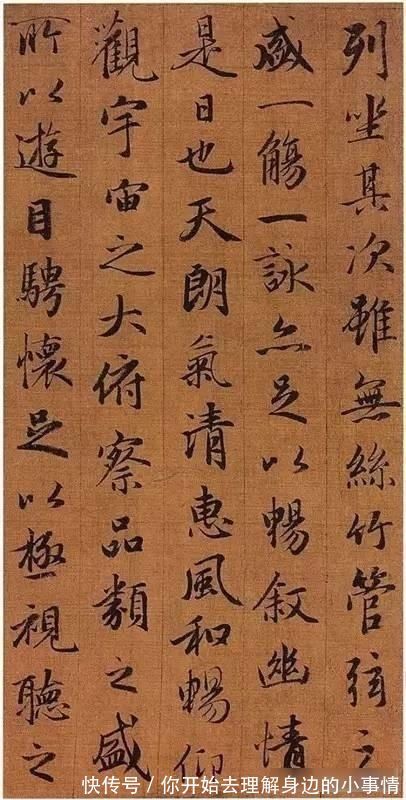 列坐其次雖無絲竹管弦之
盛一觴一詠亦足以暢叙幽情
是日也天朗氣清惠風和暢仰
觀宇宙之大俯察品類之盛
所以遊目騁懷足以極視聽之
快传号 / 你开始去理解身边的小事情